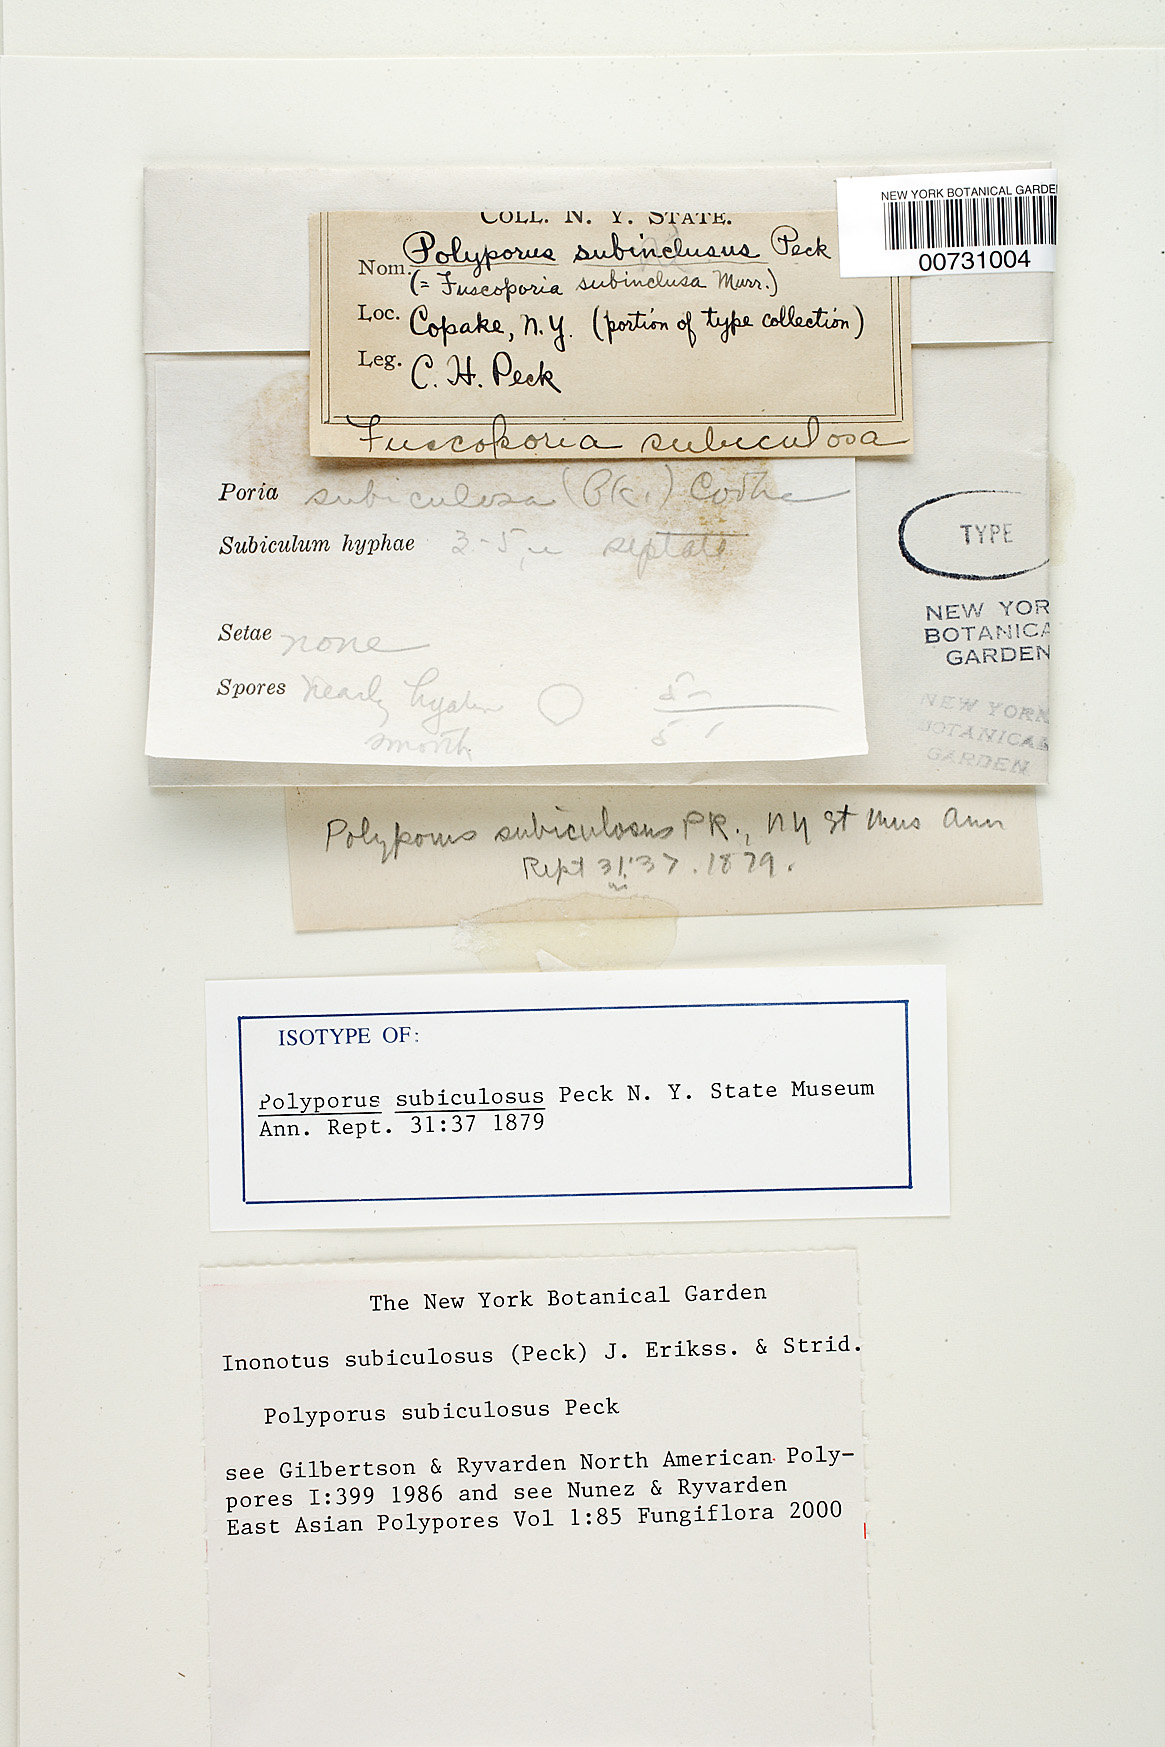 NEW YORK BOTANICAL GARDE
00731004
COLL. N. Y. STATE.
Nom. Polyporus subinclusus Peck
(= Fuscoporia subinclusa Murr.)
Loc. Copake, N.Y. (portion of type collection)
Leg. C. H. Peck
Fuscoporia subiculosa
Poria subiculosa (Pk.) Cooke
Subiculum hyphae 3-5µ septate
Setae none
Spores nearly hyalin
smooth
TYPE
NEW YOR
BOTANICA
GARDEN
NEW YORK
BOTANICAL
GARDEN
Polyporus subiculosus PK., NY St Mus Ann
Rept 31:37. 1879.
ISOTYPE OF:
Polyporus subiculosus Peck N. Y. State Museum
Ann. Rept. 31:37 1879
The New York Botanical Garden
Inonotus subiculosus (Peck) J. Erikss. & Strid.
Polyporus subiculosus Peck
see Gilbertson & Ryvarden North American Poly-
pores I:399 1986 and see Nunez & Ryvarden
East Asian Polypores Vol 1:85 Fungiflora 2000